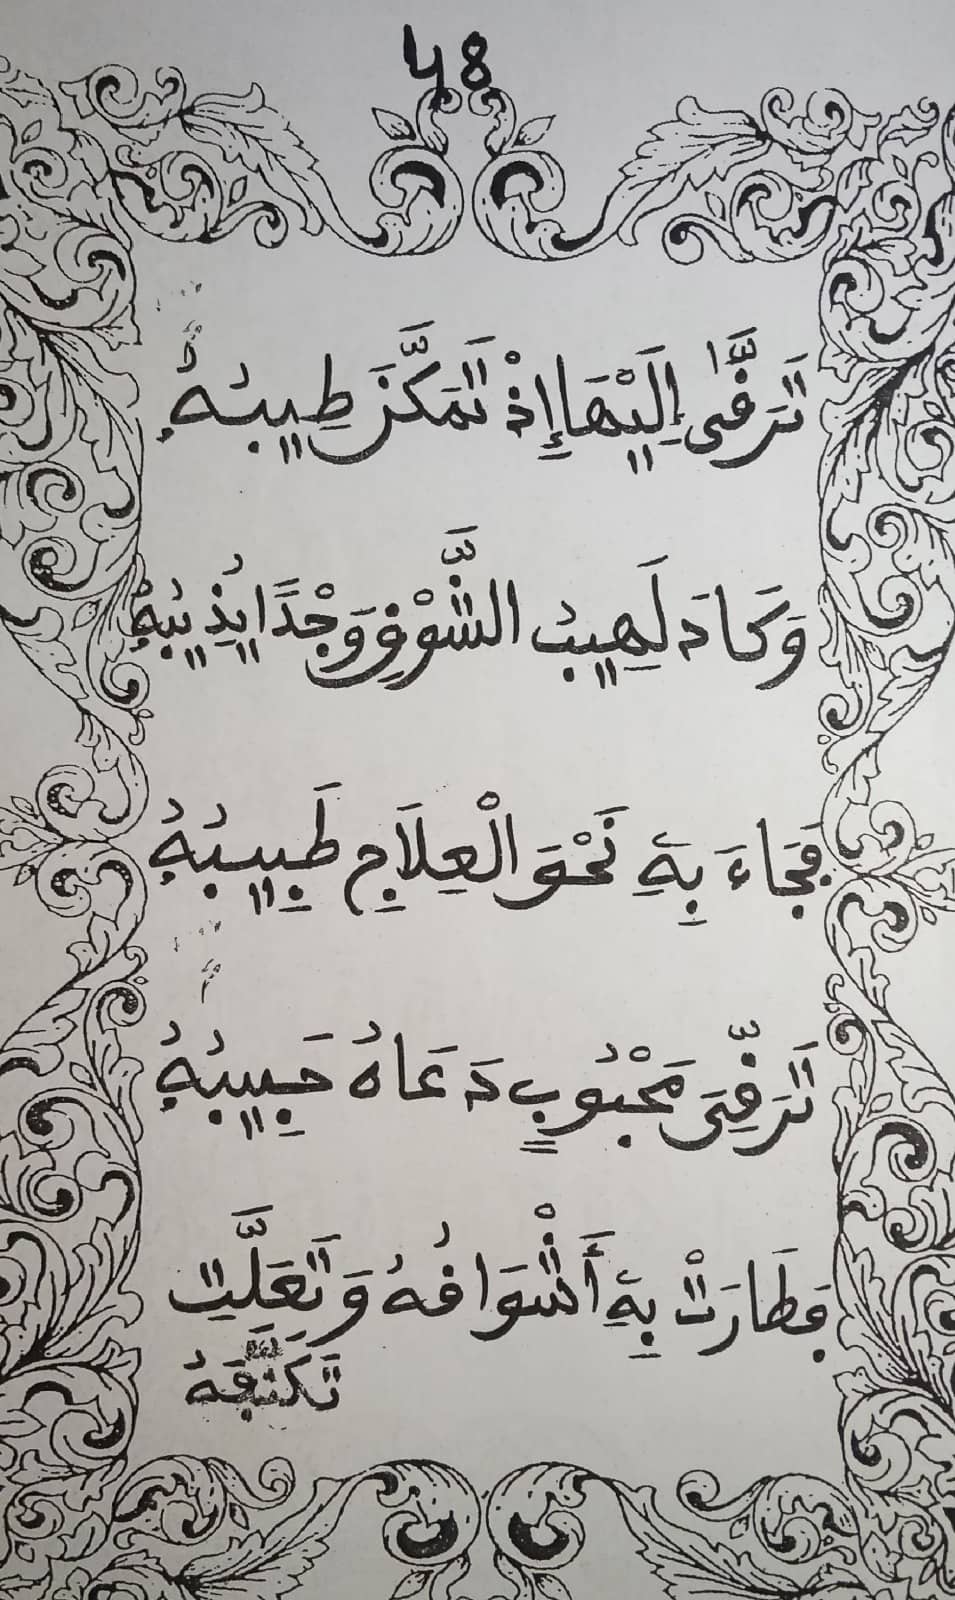 48
تَرَقَّى إِلَيْهَا إِذْ تَمَكَّنَ طِيبُهُ
وَكَادَ لَهِيبُ الشَّوْقِ وَجْدًا يُذِيبُهُ
فَجَاءَ بِهِ نَحْوَ الْعِلَاجِ طَبِيبُهُ
تَرَقِّيَ مَحْبُوبٍ دَعَاهُ حَبِيبُهُ
فَطَارَتْ بِهِ أَشْوَاقُهُ وَتَعَلَّتِ